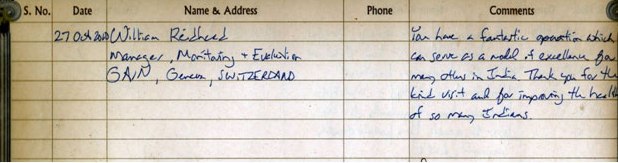 S. No. Date Name & Address Phone Comments
27 Oct 2010 William Reidhead You have a fantastic operation which
Manager, Monitoring + Evaluation can serve as a model of excellence for
GAIN, Geneva, SWITZERLAND many others in India. Thank you for the
kind visit and for improving the health
of so many Indians.